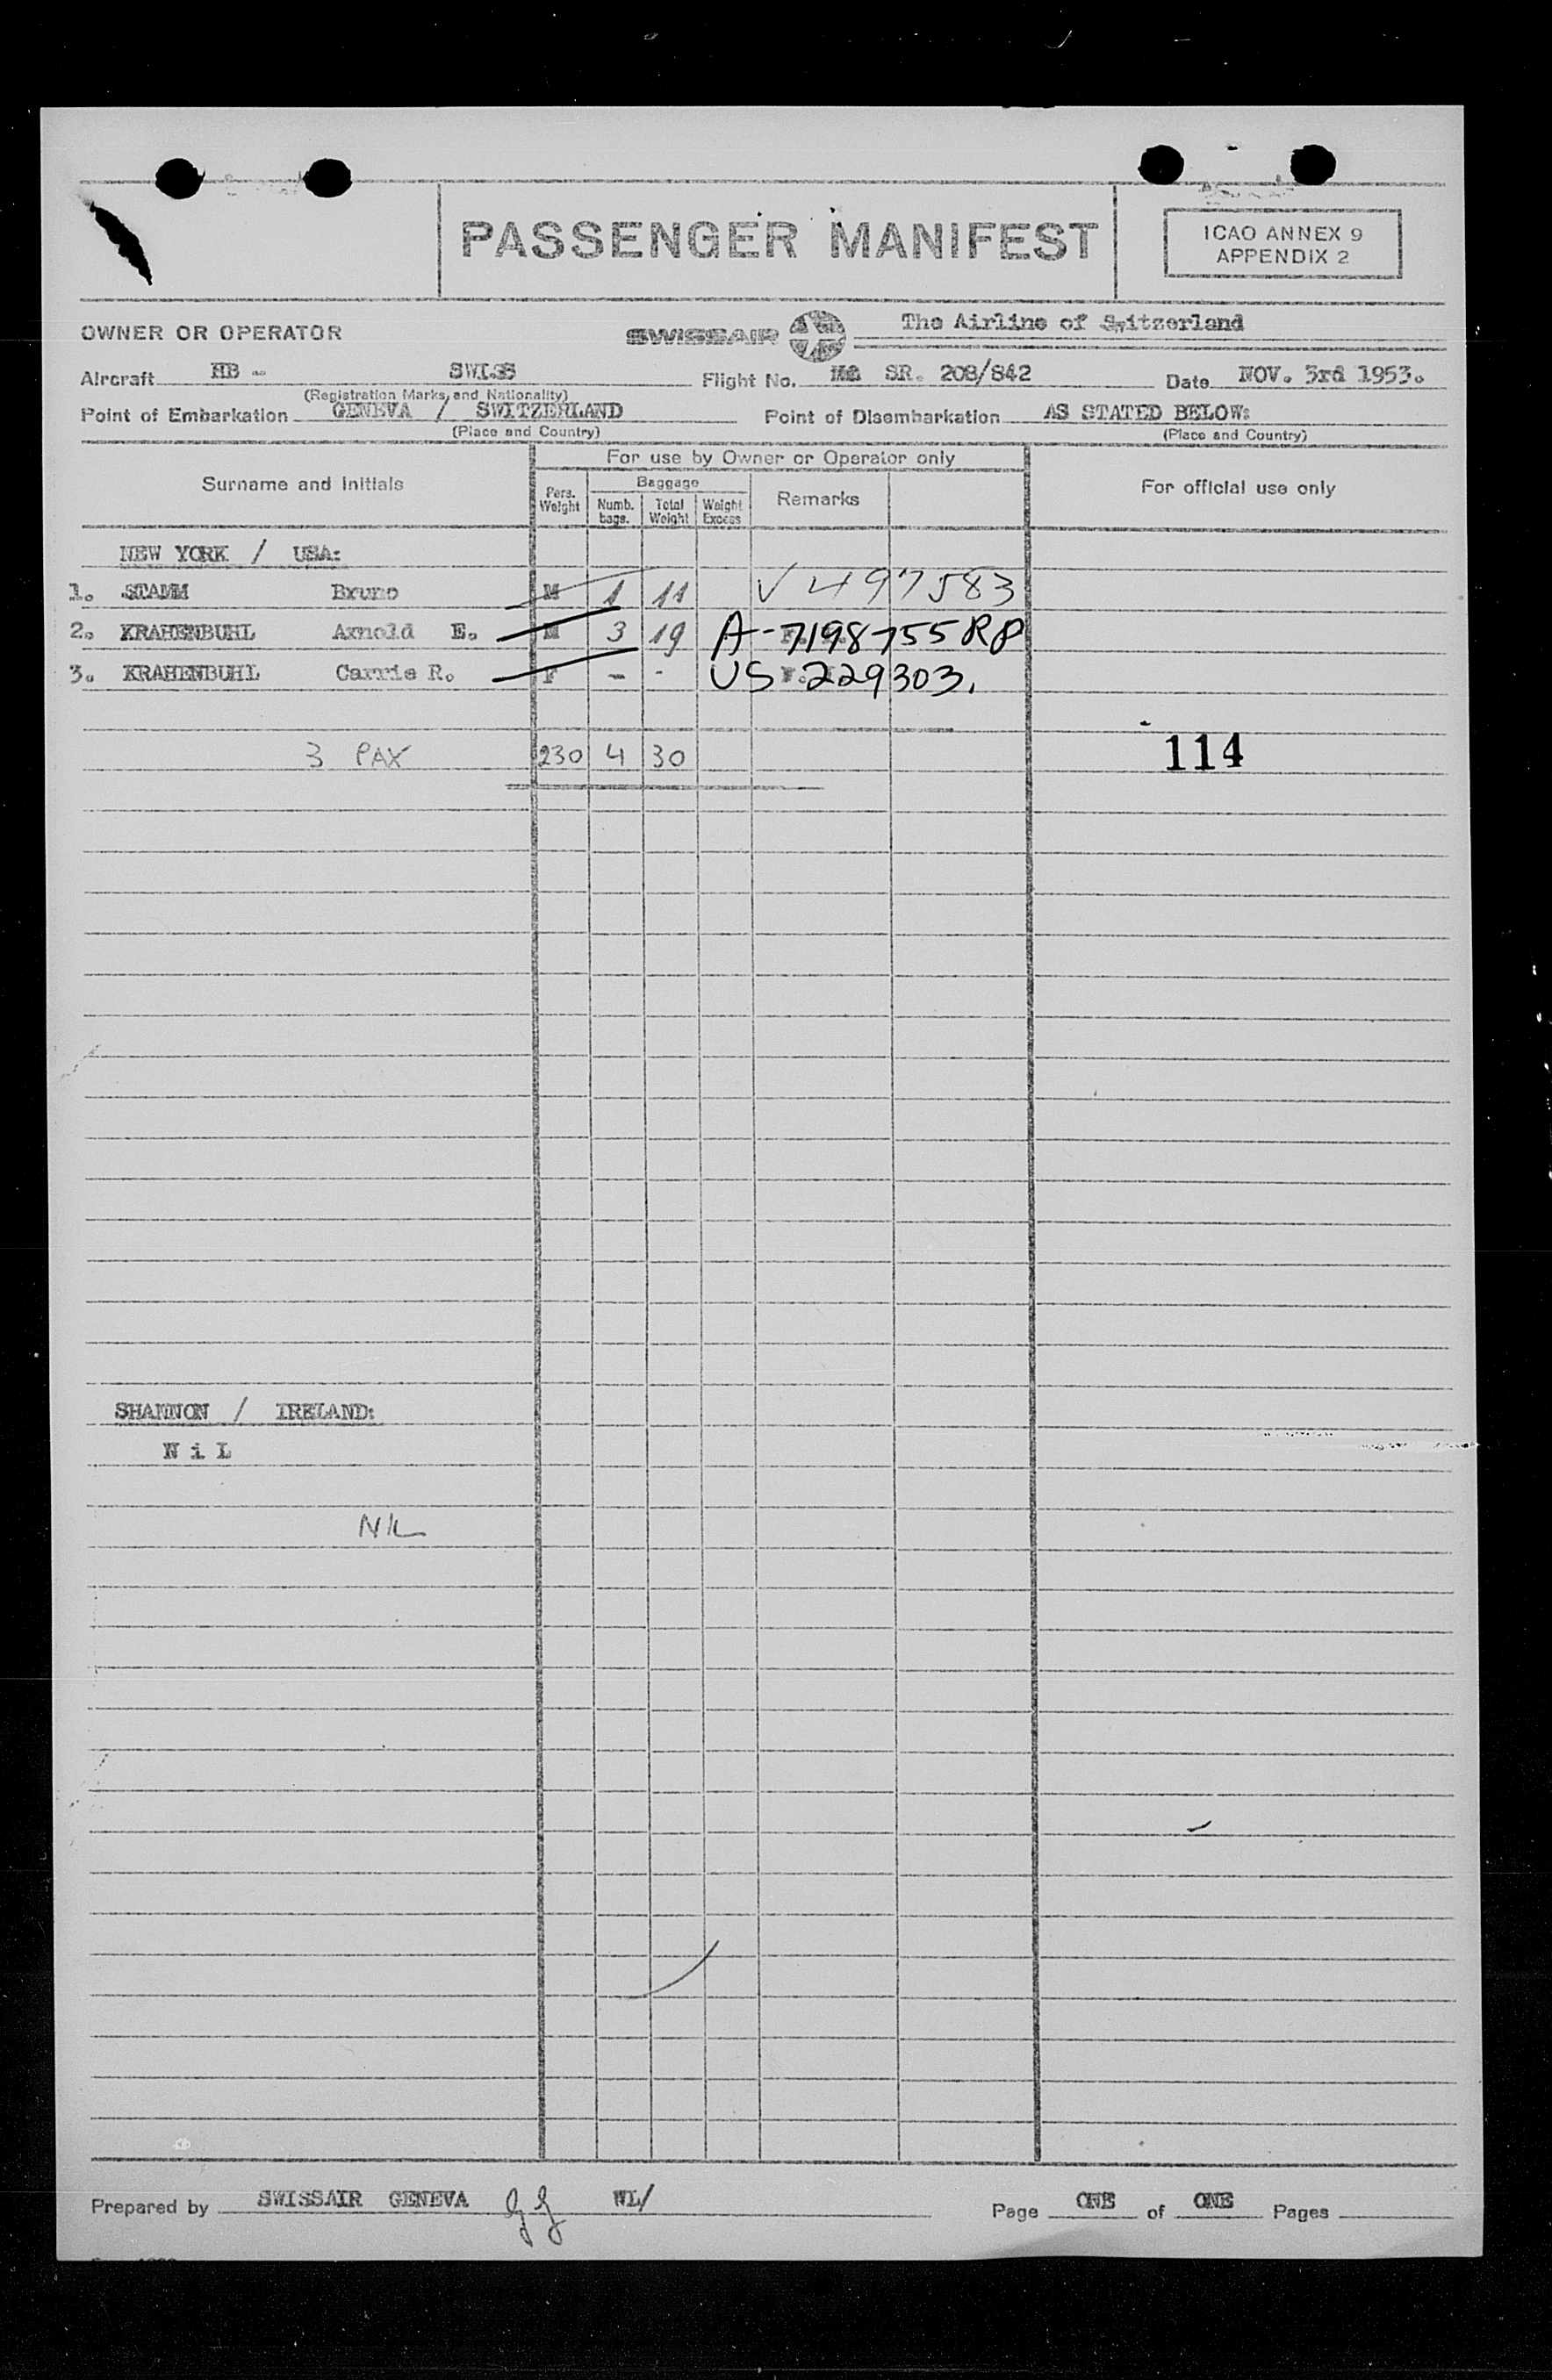 PASSENGER MANIFEST
ICAO ANNEX 9
APPENDIX 2
OWNER OR OPERATOR SWISSAIR The Airline of Switzerland
Aircraft HB - SWISS Flight No. SR. 208/842 Date NOV. 3rd 1953.
(Registration Marks and Nationality)
Point of Embarkation GENEVA / SWITZERLAND Point of Disembarkation AS STATED BELOW:
(Place and Country) (Place and Country)
For use by Owner or Operator only
Surname and Initials Pers. Weight Baggage Numb. bags. Total Weight Weight Excess Remarks For official use only
NEW YORK / USA:
1. STAMM Bruno M 1 11 V 497583
2. KRAHENBUHL Arnold E. M 3 19 A-7198755 RP
3. KRAHENBUHL Carrie R. F - - US 229303.
3 PAX 230 4 30 114
SHANNON / IRELAND:
N i L
NIL
Prepared by SWISSAIR GENEVA WL/ Page ONE of ONE Pages